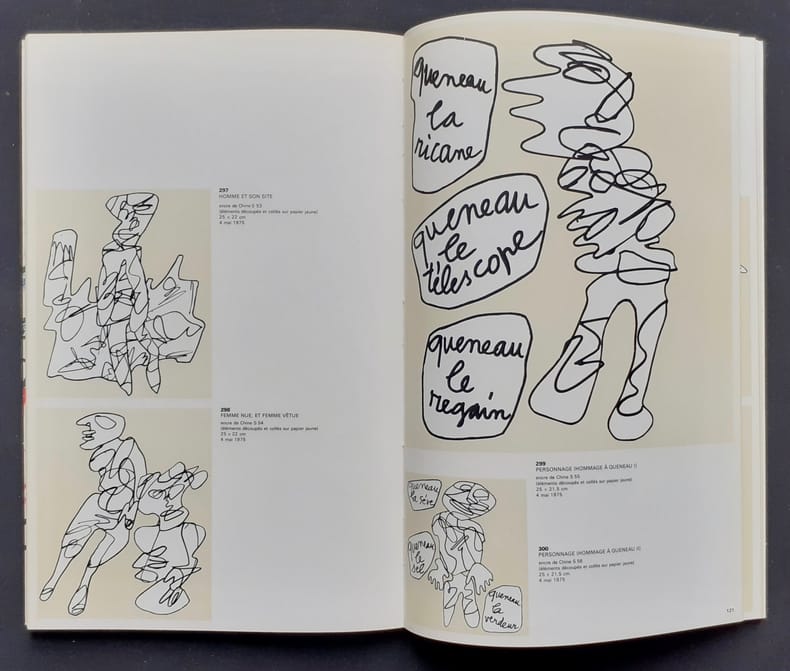 297
HOMME ET SON SITE
encre de Chine S 53
(éléments découpés et collés sur papier jaune)
25 × 22 cm
4 mai 1975
298
FEMME NUE, ET FEMME VÊTUE
encre de Chine S 54
(éléments découpés et collés sur papier jaune)
25 × 22 cm
4 mai 1975
queneau
la
ricane
queneau
le
télescope
queneau
le
regain
299
PERSONNAGE (HOMMAGE À QUENEAU I)
encre de Chine S 55
(éléments découpés et collés sur papier jaune)
25 × 21,5 cm
4 mai 1975
queneau
la sève
queneau
le
sel
queneau
la
verdeur
300
PERSONNAGE (HOMMAGE À QUENEAU II)
encre de Chine S 56
(éléments découpés et collés sur papier jaune)
25 × 21,5 cm
4 mai 1975
121